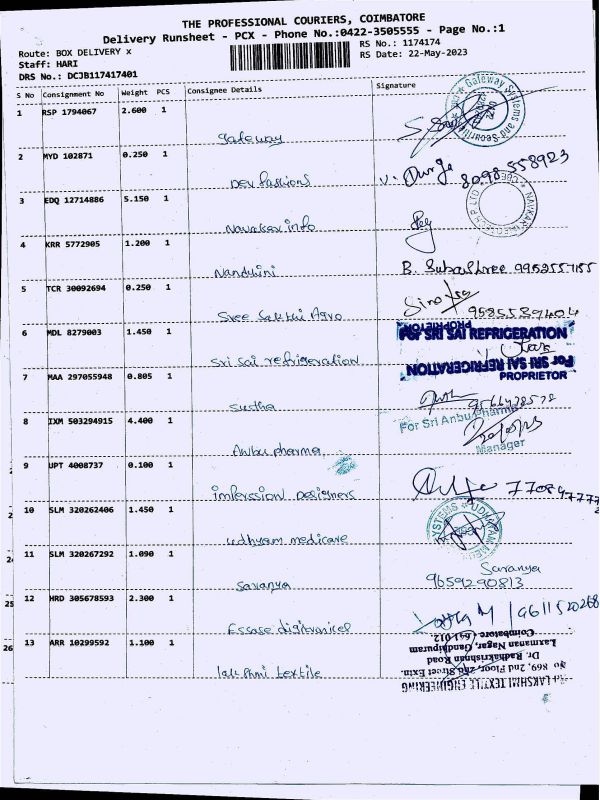 THE PROFESSIONAL COURIERS, COIMBATORE
Delivery Runsheet - PCX - Phone No.:0422-3505555 - Page No.:1
Route: BOX DELIVERY x
RS No.: 1174174
Staff: HARI
RS Date: 22-May-2023
DRS No.: DCJB117417401
S No Consignment No Weight PCS Consignee Details Signature
1 RSP 1794067 2.600 1
Gateway
Gateway Systems and Securities
2 MYD 102871 0.250 1
Dev fashions
V. Durga 8098558923
3 EDQ 12714886 5.150 1
Navakar info
4 KRR 5772905 1.200 1
Nandhini
B. Subashree
5 TCR 30092694 0.250 1
Sree Sakthi Agro
6 MDL 8279003 1.450 1
Sri Sai refrigeration
For SRI SAI REFRIGERATION
PROPRIETOR
For SRI SAI REFRIGERATION
PROPRIETOR
7 MAA 297055948 0.805 1
Sustha
8 IXM 503294915 4.400 1
Anbu pharma
For Sri Anbu Pharma
Manager
9 UPT 4008737 0.100 1
Designers
10 SLM 320262406 1.450 1
udhyam medicare
11 SLM 320267292 1.090 1
Saranya
Saranya
9659290813
12 HRD 305678593 2.300 1
13 ARR 10299592 1.100 1
textile
LAKSHMI TEXTILE ENGINEERING
No 869, 2nd Floor, 2nd Street Extn.
Dr. Radhakrishnan Road
Laxmanan Nagar, Gandhipuram
Coimbatore - 641 012.
25
26